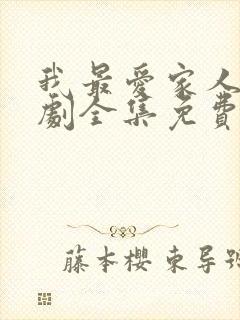 我最愛家人
劇全集免費
藤本櫻 東导